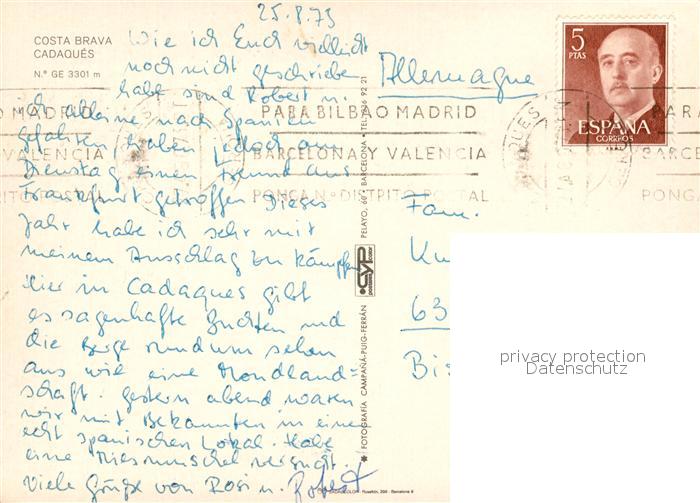 25.8.73
COSTA BRAVA
CADAQUÉS
N.° GE 3301 m
Wie ich Euch vielleicht
noch nicht geschrieben
habe sind Robert u.
ich alleine nach Spanien
gefahren, haben jedoch am
Dienstag einen Freund aus
Frankfurt getroffen. Dieses
Jahr habe ich sehr mit
meinem Ausschlag zu kämpfen
Hier in Cadaques gibt
es sagenhafte Buchten und
die Berge rundum sehen
aus wie eine Mondland=
schaft. Gestern abend waren
wir mit Bekannten in einem
echt spanischen Lokal. Habe
eine Riesenmuschel versucht.
Viele Grüße von Rosi u. Robert
Allemagne
5
PTAS
ESPAÑA
CORREOS
MADRID
VALENCIA
PARA BILBAO MADRID
BARCELONA Y VALENCIA
PONGA N.° DISTRITO POSTAL
PARA
BARCE
PONGA
PELAYO, 60 • BARCELONA • TEL.
CYP
FOTOGRAFÍA CAMPAÑÁ-PUIG-FERRÁN
Fam.
Ku
63
Bis
privacy protection
Datenschutz